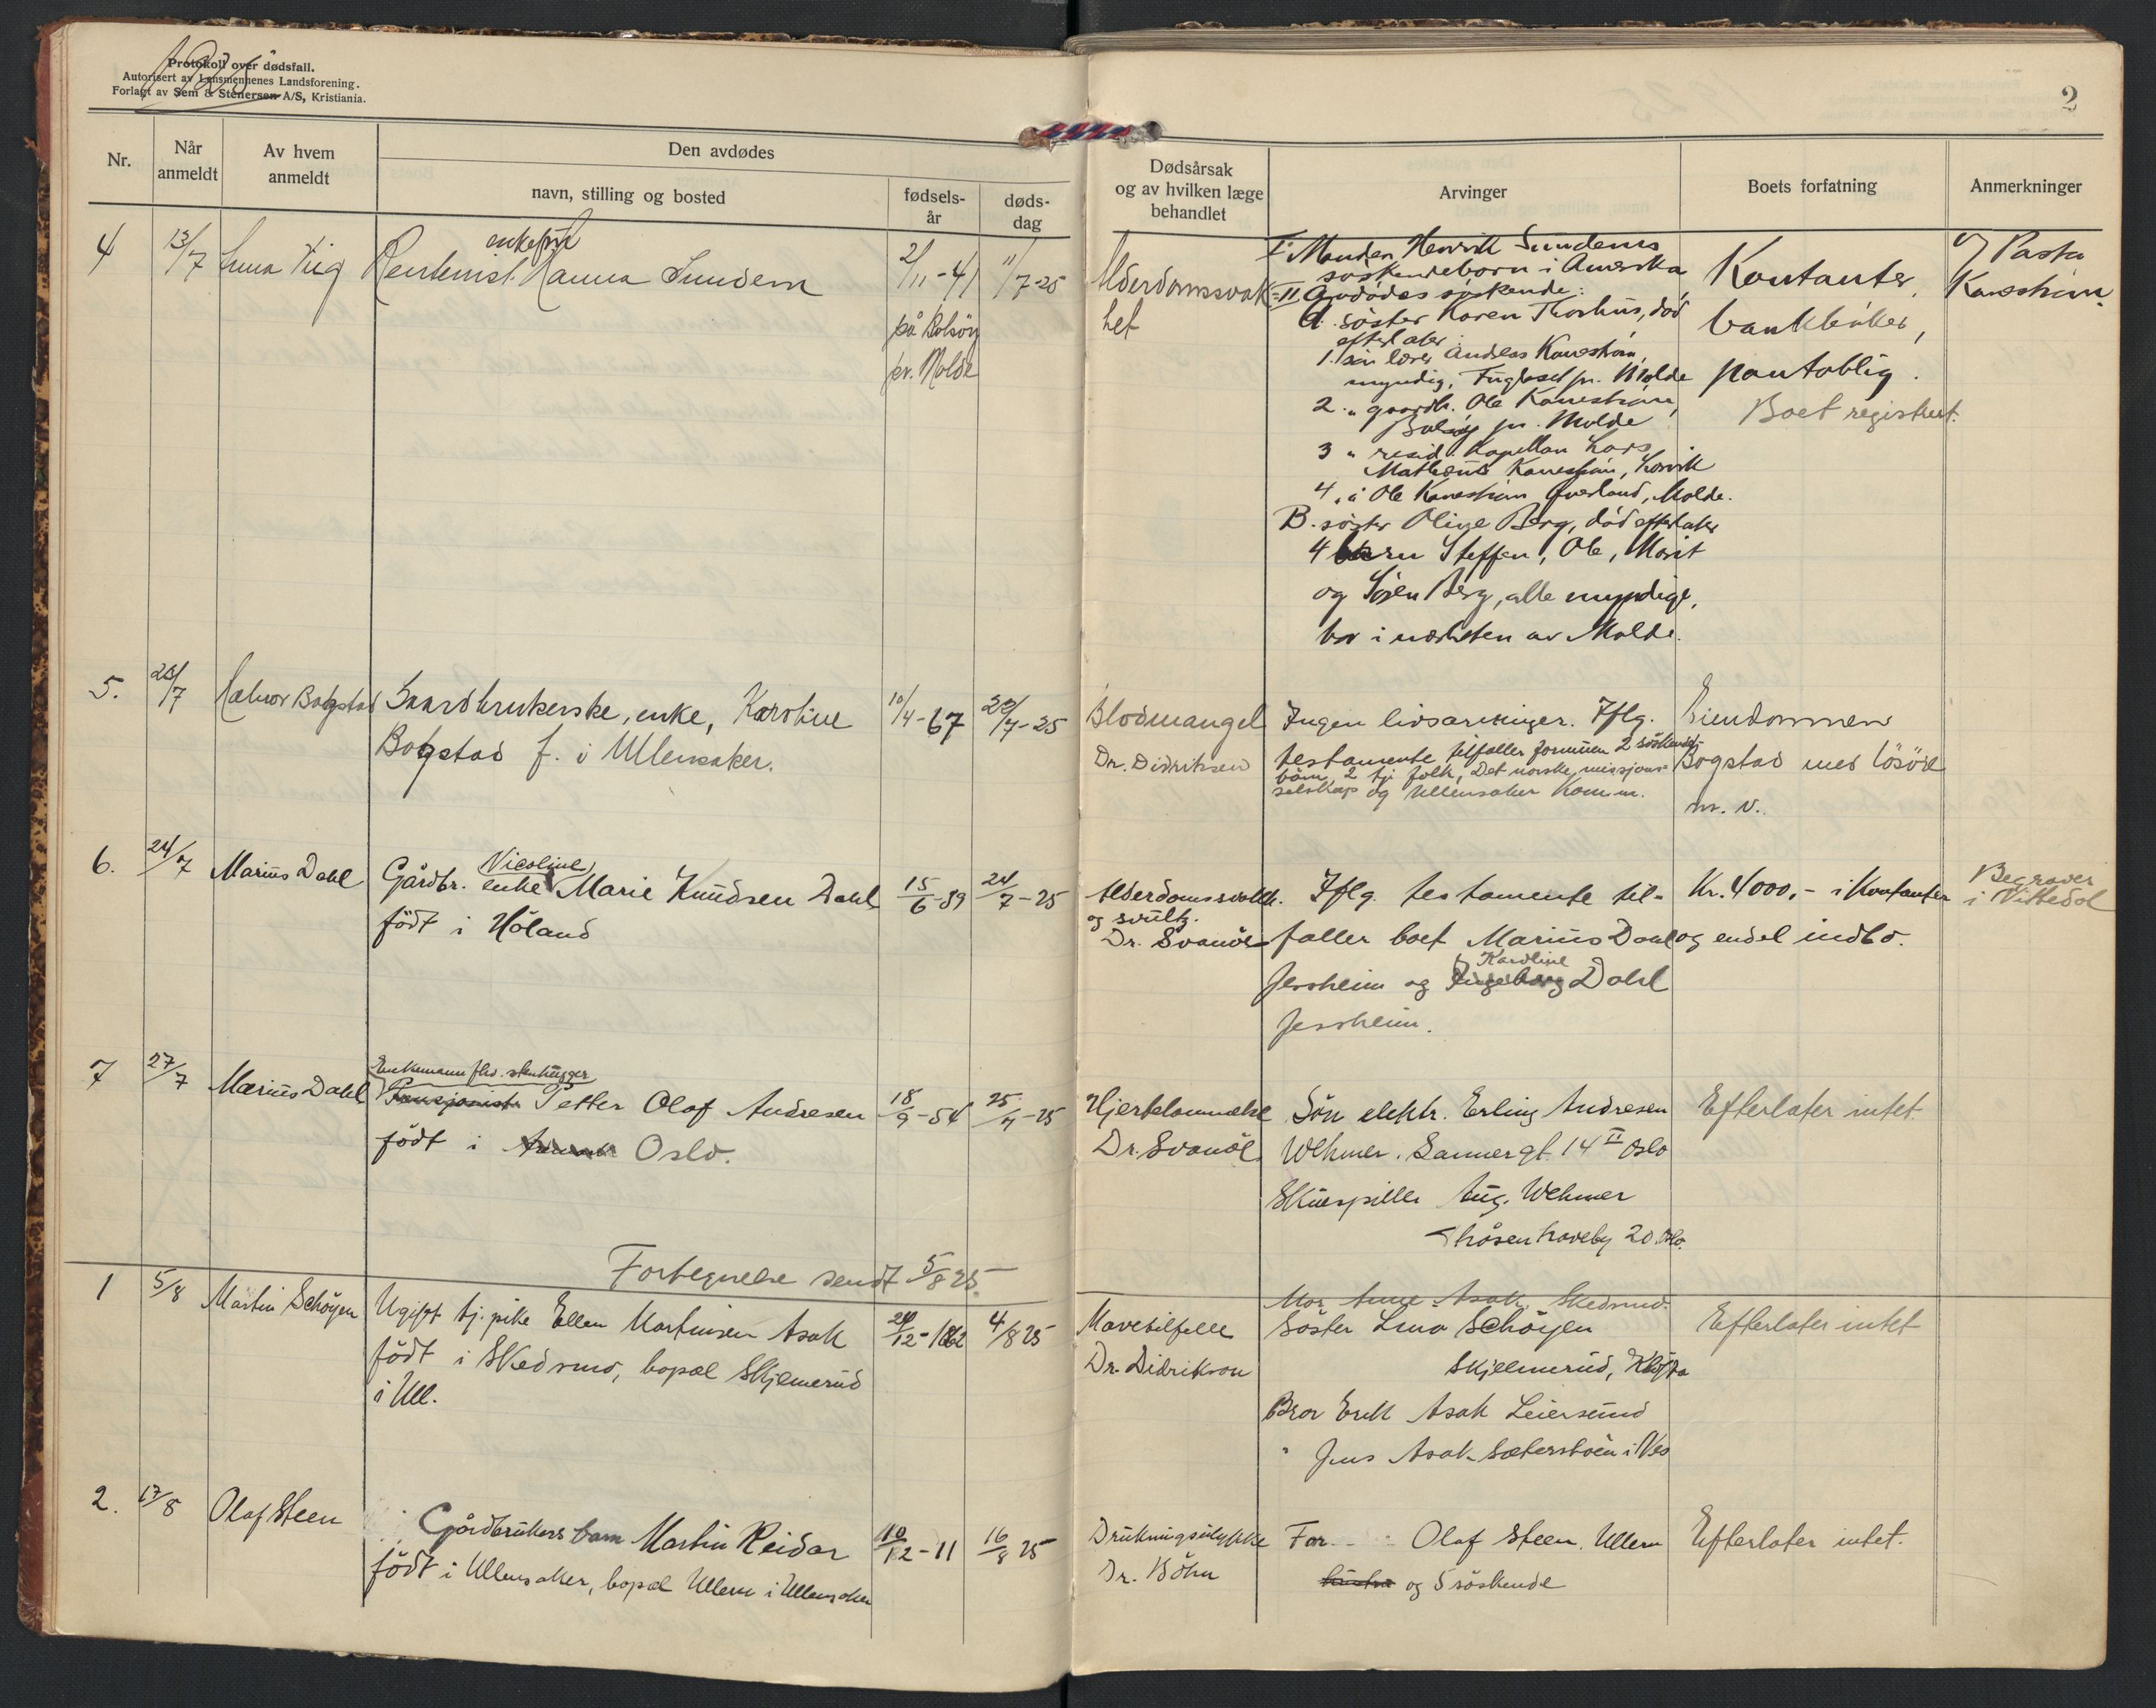 1925
Protokoll over dødsfall.
Autorisert av Lensmennenes Landsforening.
Forlagt av Sem & Stenersen A/S, Kristiania.
2
Nr.
Når anmeldt
Av hvem anmeldt
Den avdødes
navn, stilling og bosted
fødsels-
år
døds-
dag
Dødsårsak
og av hvilken læge
behandlet
Arvinger
Boets forfatning
Anmerkninger
4
13/7
enkefru
Rentenist Hanna Sundem
2/11-41
på Bolsöy
pr. Molde
11/7-25
Alderdomssvak=
het
I. Manden Henrik Sundems
söskendebörn i Amerika
II Avdödes söskende:
A. söster Karen Thorhus, död
efterlater
1. sön lærer Andreas Kaneström,
myndig, Fuglset pr. Molde
2. " gaardb. Ole Kaneström,
Bolsöy pr. Molde
3 " resid. Kapellan Lars
Mathæus Kaneström,
4. " Ole Kaneström Øverland, Molde.
B. söster Olive Berg, död efterlater
4 børn Steffen, Ole, Marit
og Sören Berg, alle myndige,
bor i nærheten av Molde.
Kontanter,
bankböker,
pantoblig.
Boet registrert.
Kaneström.
5.
23/7
Halvor Bogstad
Gaardbrukerske, enke, Karoline
Bogstad f. i Ullensaker.
10/4-67
22/7-25
Blodmangel
Dr. Didriksen
Ingen livsarvinger. Iflg.
testamente tilfaller formuen 2 söskende-
børn, 2 tj. folk, Det norske misjons-
selskap og Ullensaker Komm.
Eiendommen
Bogstad med lösöre
m. v.
6.
24/7
Marius Dahl
Nicoline
Gårdbr. enke Marie Knudsen Dahl
födt i Höland
15/6-39
24/7-25
Alderdomssvakh.
og svulst.
Dr. Svanöe
Iflg. testamente til-
faller boet Marius Dahl
Karoline
Jessheim og Ingeborg Dahl
Jessheim.
Kr. 4000,- i Kontanter
og endel indbo.
Begraver
i Nittedal
7
27/7
Marius Dahl
Enkemann fhv. stenhugger
Pensjonist Petter Olaf Andresen
födt i Oslo.
18/9-54
25/7-25
Hjertelammelse
Dr. Svanöe
Sön elektr. Erling Andresen
Wehmer. Sannergt. 14 II Oslo
Skuespiller Aug. Wehmer
Thåsen haveby 20. Oslo.
Efterlater intet
Fortegnelse sendt 5/8 25.
1
5/8
Martin Schöyen
Ugift tj. pike Ellen Martinsen Asak
födt i Skedsmo, bopæl Skjemerud
i Ull.
20/12-1862
4/8 25
Mavetilfelle
Dr. Didrikson
Mor Anne Asak, Skedsmo.
Söster Lina Schöyen
Skjelmerud, Klöfta
Bror Erik Asak Leiersund
" Jens Asak i Nes
Efterlater intet
2.
17/8
Olaf Steen
Gårdbrukers barn Martin Reidar
födt i Ullensaker, bopæl Ullern i Ullensaker
10/12-11
16/8 25
Drukningsulykke
Dr. Böhn
Far Olaf Steen. Ullern
hustru og 5 söskende
Efterlater intet.